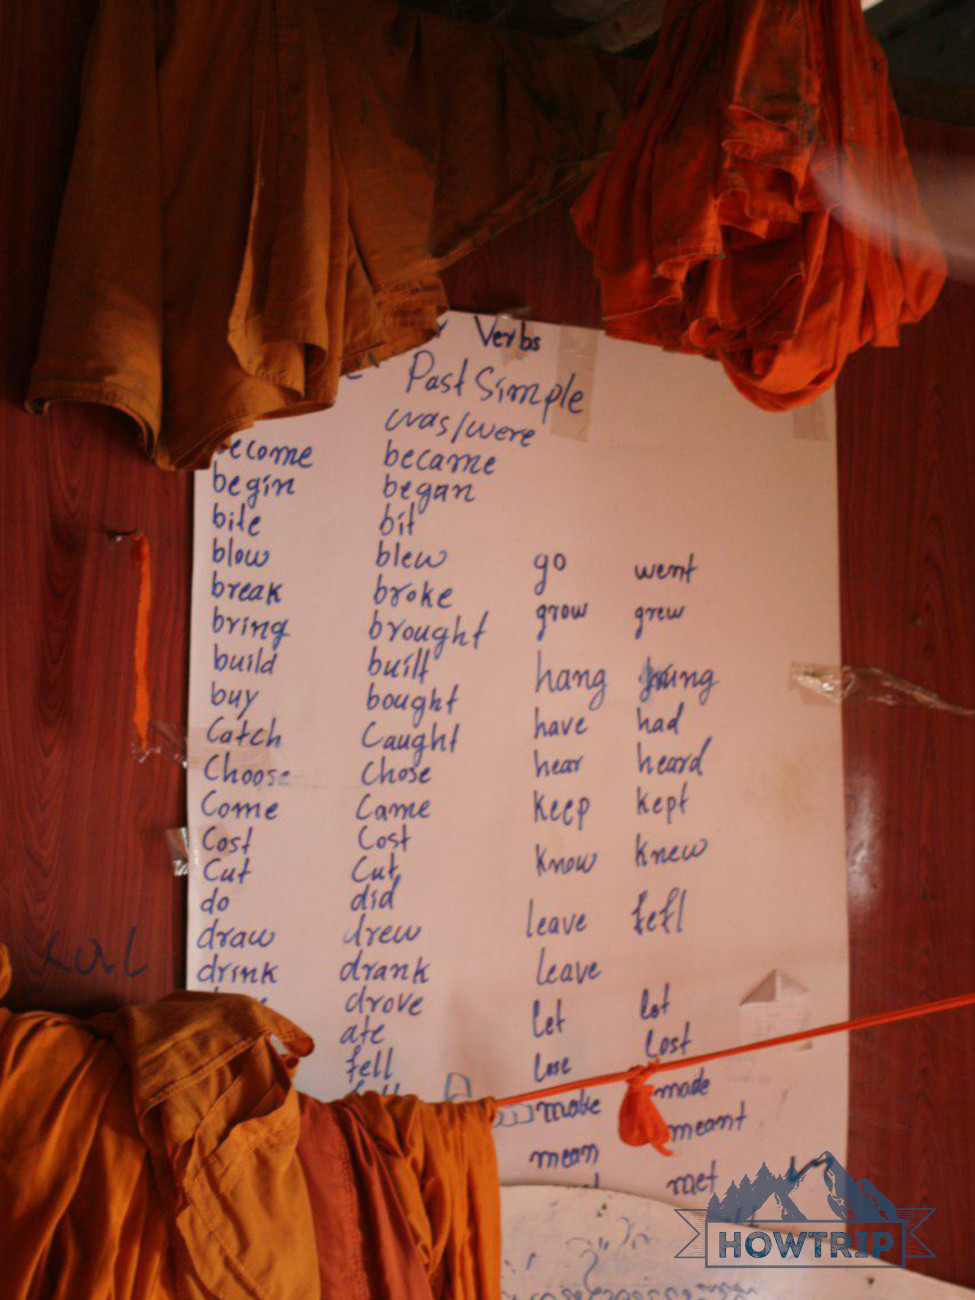 Verbs
Past Simple
was/were
become became
begin began
bite bit
blow blew
break broke
bring brought
build built
buy bought
Catch Caught
Choose Chose
Come Came
Cost Cost
Cut Cut
do did
draw drew
drink drank
drove
ate
fell
go went
grow grew
hang hung
have had
hear heard
keep kept
know knew
leave left
leave
let let
lose lost
make made
mean meant
met
HOWTRIP